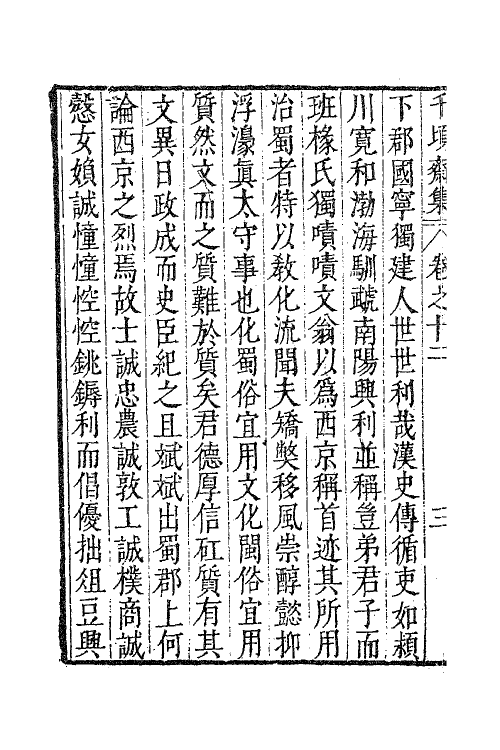 千頃齋集 卷之十二 三
下郡國寧獨建人世世利哉漢史傳循吏如潁
川寬和渤海馴虣南陽興利並稱豈弟君子而
班椽氏獨嘖嘖文翁以為西京稱首迹其所用
治蜀者特以敎化流聞夫矯獘移風崇醇懿抑
浮濠眞太守事也化蜀俗宜用文化閩俗宜用
質然文而之質難於質矣君德厚信矼質有其
文異日政成而史臣紀之且斌斌出蜀郡上何
論西京之烈焉故士誠忠農誠敦工誠樸商誠
慤女媜誠憧憧悾悾銚鎒利而倡優拙俎豆興